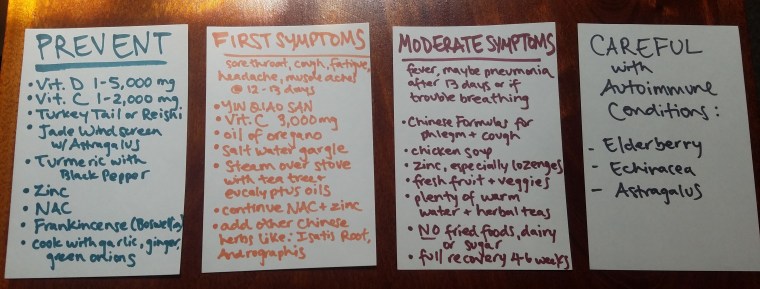 PREVENT
• Vit. D 1-5,000 mg
• Vit. C 1-2,000 mg
• Turkey Tail or Reishi
• Jade Windscreen
w/ Astragalus
• Turmeric with
Black Pepper
• Zinc
• NAC
• Frankincense (Boswellia)
• cook with garlic, ginger,
green onions
FIRST SYMPTOMS
sore throat, cough, fatigue,
headache, muscle aches
@ 12-13 days
• YIN QIAO SAN
• Vit. C 3,000mg
• oil of oregano
• Salt water gargle
• Steam over stove
with tea tree or
eucalyptus oils
• continue NAC + zinc
• add other Chinese
herbs like: Isatis Root,
Andrographis
MODERATE SYMPTOMS
fever, maybe pneumonia
after 13 days or if
trouble breathing
• Chinese Formulas for
phlegm + cough
• chicken soup
• zinc, especially lozenges
• fresh fruit + veggies
• plenty of warm
water + herbal teas
• NO fried foods, dairy
or sugar
• full recovery 4-6 weeks
CAREFUL
with
Autoimmune
Conditions:
- Elderberry
- Echinacea
- Astragalus